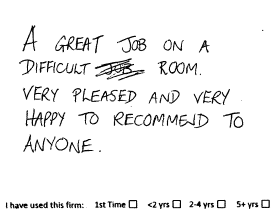 A GREAT JOB ON A
DIFFICULT ROOM.
VERY PLEASED AND VERY
HAPPY TO RECOMMEND TO
ANYONE.
I have used this firm: 1st Time ☐ <2 yrs ☐ 2-4 yrs ☐ 5+ yrs ☐